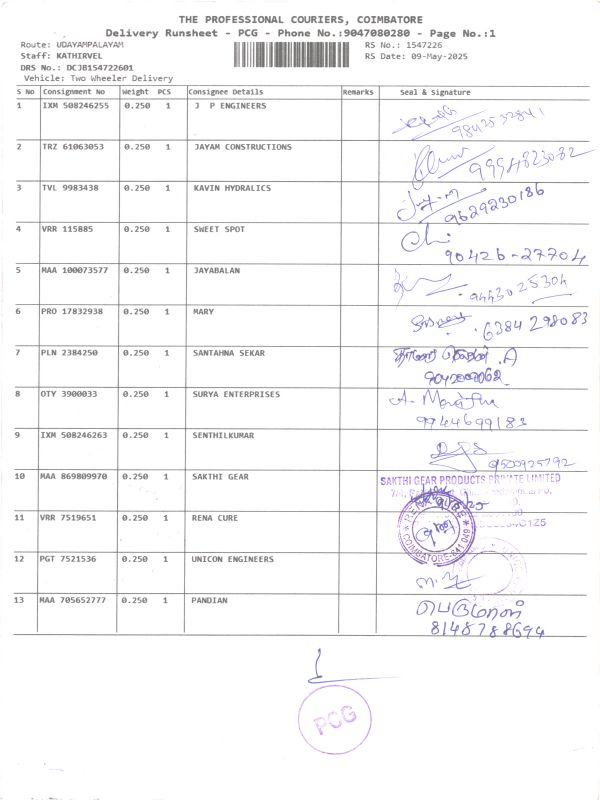 THE PROFESSIONAL COURIERS, COIMBATORE
Delivery Runsheet - PCG - Phone No.:9047080280 - Page No.:1
Route: UDAYAMPALAYAM RS No.: 1547226
Staff: KATHIRVEL RS Date: 09-May-2025
DRS No.: DCJB154722601
Vehicle: Two Wheeler Delivery
S No Consignment No Weight PCS Consignee Details Remarks Seal & Signature
1 IXM 508246255 0.250 1 J P ENGINEERS
9842532841
2 TRZ 61063053 0.250 1 JAYAM CONSTRUCTIONS
9994823082
3 TVL 9983438 0.250 1 KAVIN HYDRALICS
9629230186
4 VRR 115885 0.250 1 SWEET SPOT
90426-27704
5 MAA 100073577 0.250 1 JAYABALAN
9443025304
6 PRO 17832938 0.250 1 MARY
6384298083
7 PLN 2384250 0.250 1 SANTAHNA SEKAR
8 OTY 3900033 0.250 1 SURYA ENTERPRISES
9944699183
9 IXM 508246263 0.250 1 SENTHILKUMAR
9500925792
10 MAA 869809970 0.250 1 SAKTHI GEAR SAKTHI GEAR PRODUCTS PRIVATE LIMITED
11 VRR 7519651 0.250 1 RENA CURE RENA CURE COIMBATORE-641 049
12 PGT 7521536 0.250 1 UNICON ENGINEERS
13 MAA 705652777 0.250 1 PANDIAN பெருமாள்
8148788694
PCG